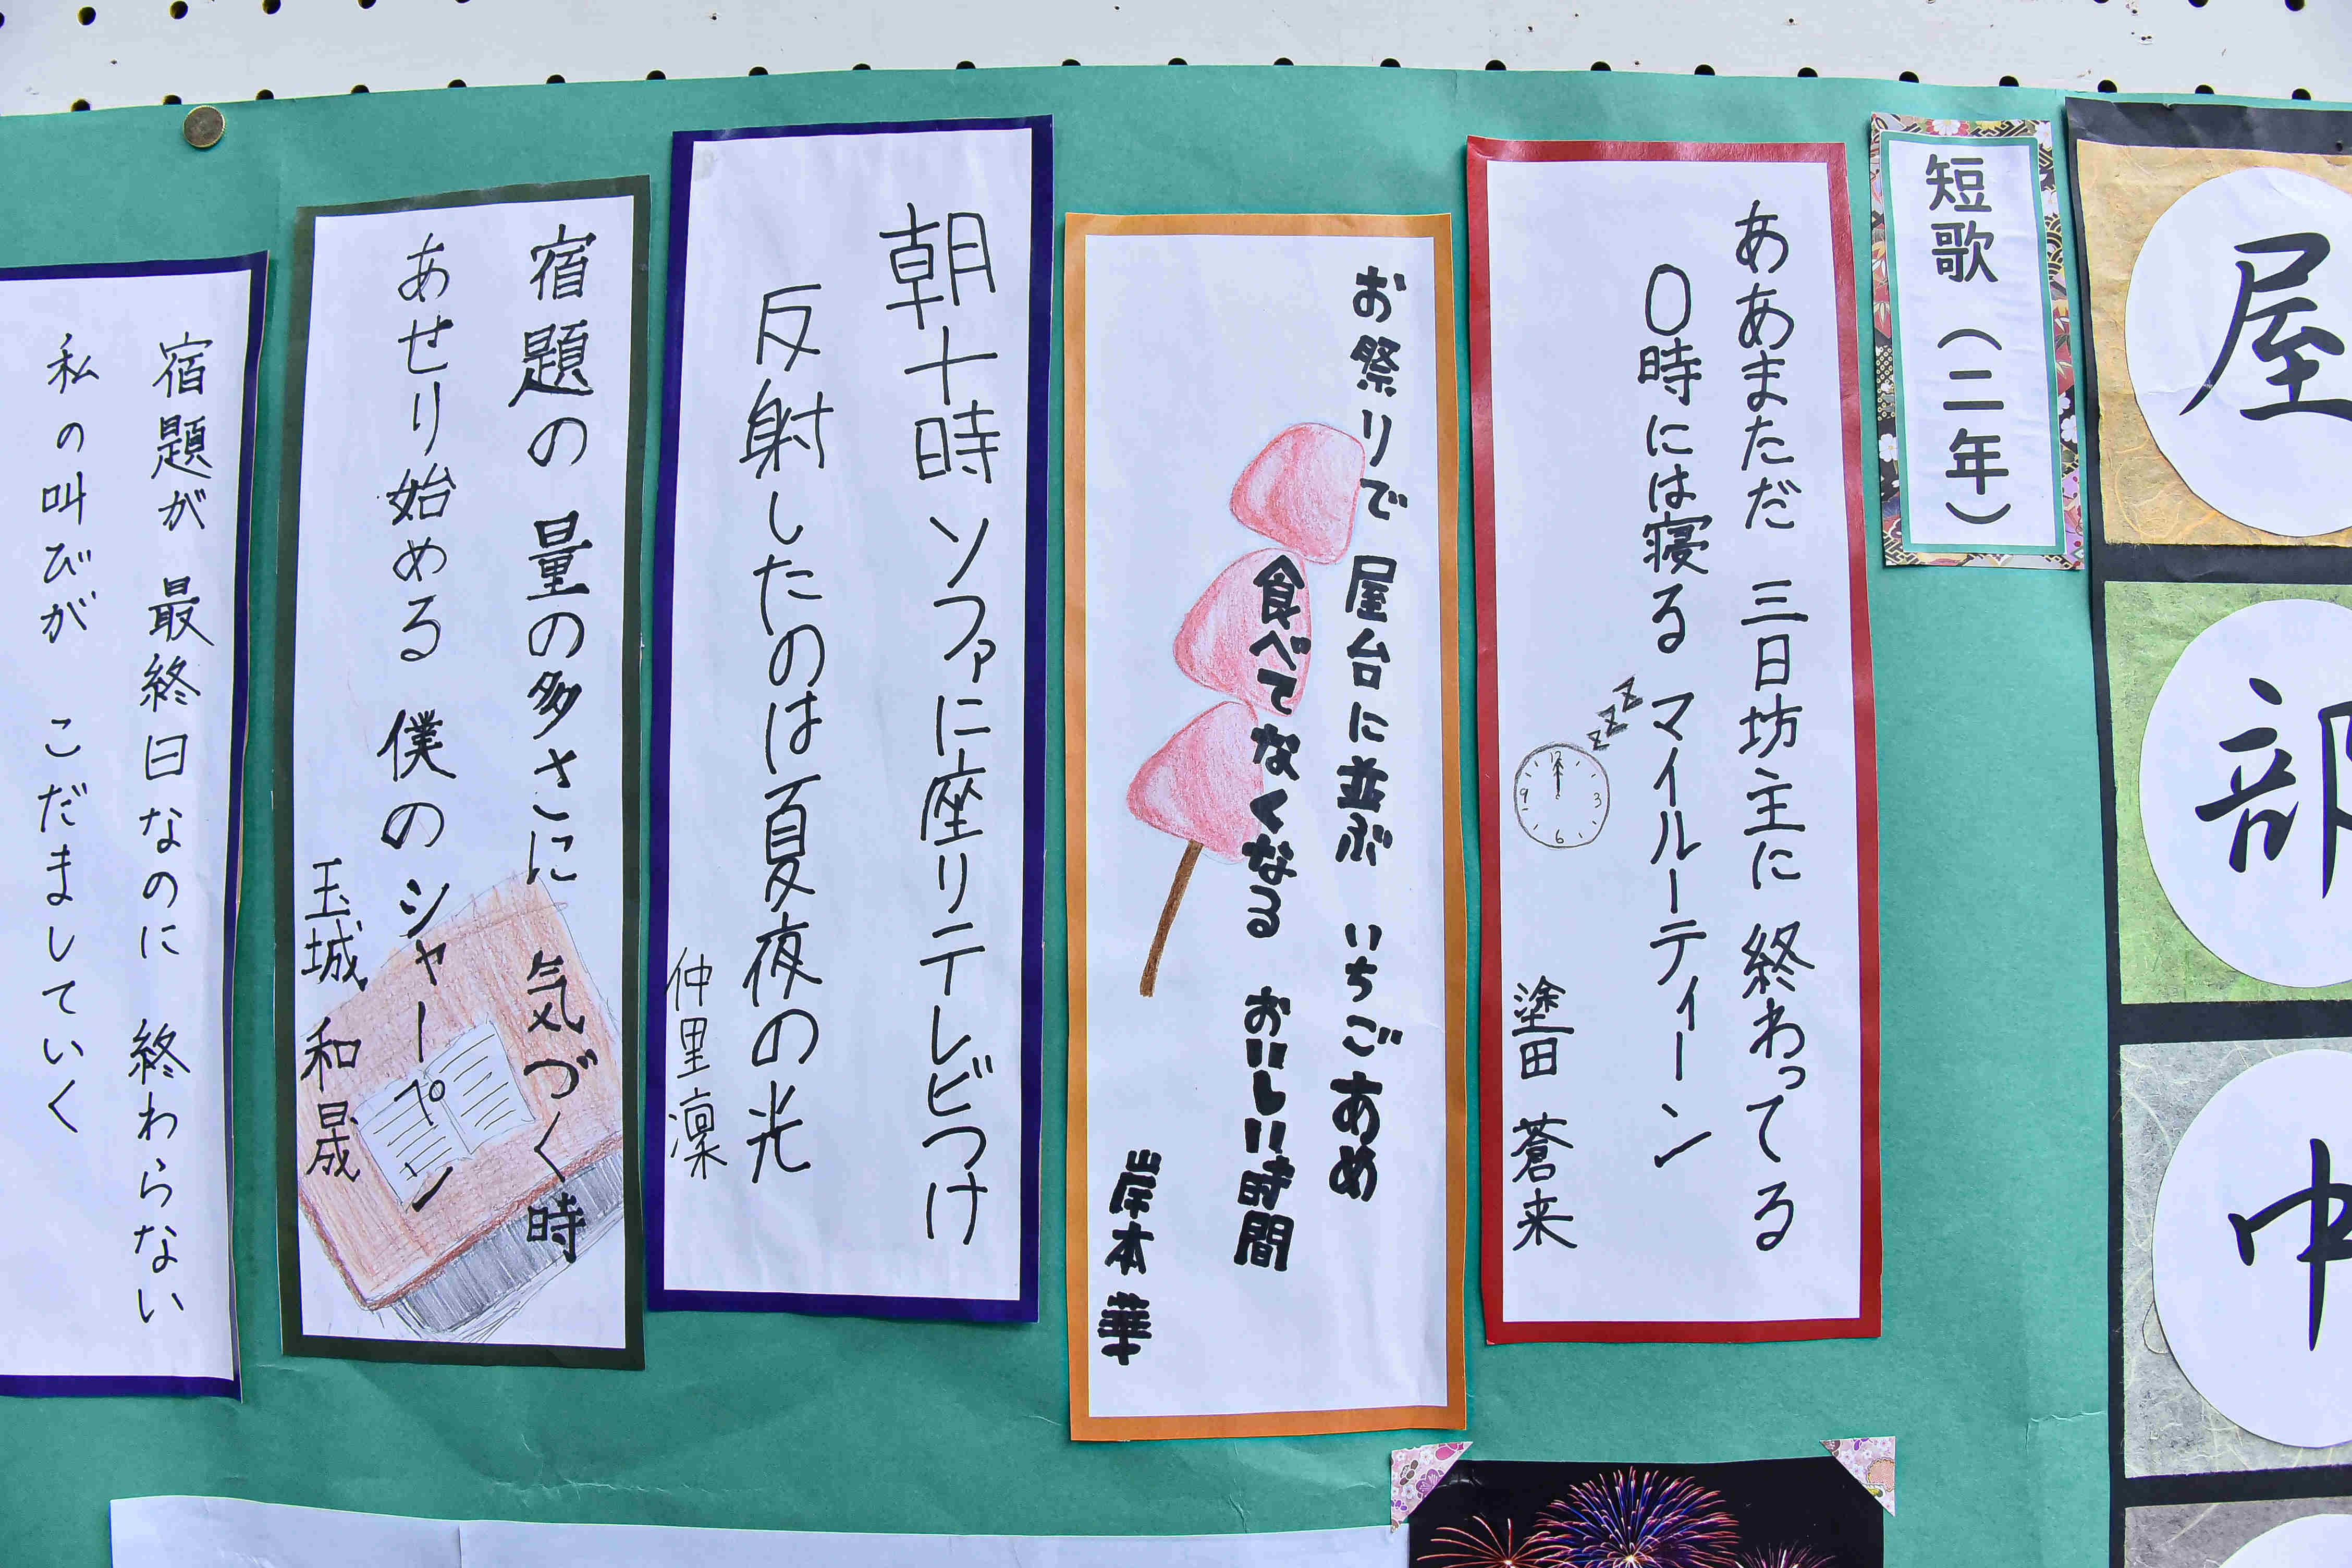 屋部中
短歌（二年）
ああまただ 三日坊主に 終わってる
０時には寝る マイルーティーン
塗田 蒼来
zzz
12
3
6
9
お祭りで 屋台に並ぶ いちごあめ
食べてなくなる おいしい時間
岸本 華
朝十時 ソファに座りテレビつけ
反射したのは夏夜の光
仲里凛
宿題の 量の多さに 気づく時
あせり始める 僕の シャーペン
玉城 和晟
宿題が 最終日なのに 終わらない
私の叫びが こだましていく